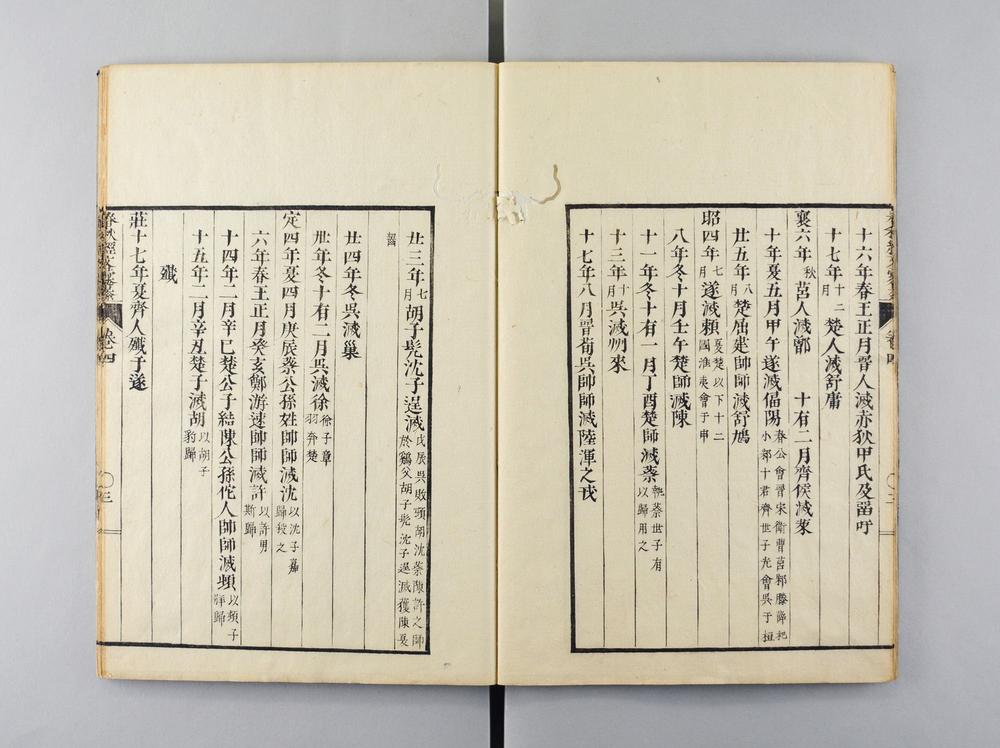 十六年春王正月晉人滅赤狄甲氏及畱吁
十七年十二月楚人滅舒庸
襄六年秋莒人滅鄫 十有二月齊侯滅萊
十年夏五月甲午遂滅偪陽春公會晉宋衛曹莒邾滕薛杞小邾十君齊世子光會吳于柤
廿五年八月楚屈建帥師滅舒鳩
昭四年七月遂滅賴夏楚以下十二國淮夷會于申
八年冬十月壬午楚師滅陳
十一年冬十有一月丁酉楚師滅蔡執蔡世子有以歸用之
十三年十月吳滅州來
十七年八月晉荀吳帥師滅陸渾之戎
廿三年七月胡子髡沈子逞滅戊辰吳敗頓胡沈蔡陳許之師於鷄父胡子髡沈子逞滅獲陳夏齧
廿四年冬吳滅巢
卅年冬十有二月吳滅徐徐子章羽奔楚
定四年夏四月庚辰蔡公孫姓帥師滅沈以沈子嘉歸殺之
六年春王正月癸亥鄭游速帥師滅許以許男斯歸
十四年二月辛巳楚公子結陳公孫佗人帥師滅頓以頓子牂歸
十五年二月辛丑楚子滅胡以胡子豹歸
殲
莊十七年夏齊人殲于遂
卷四
三